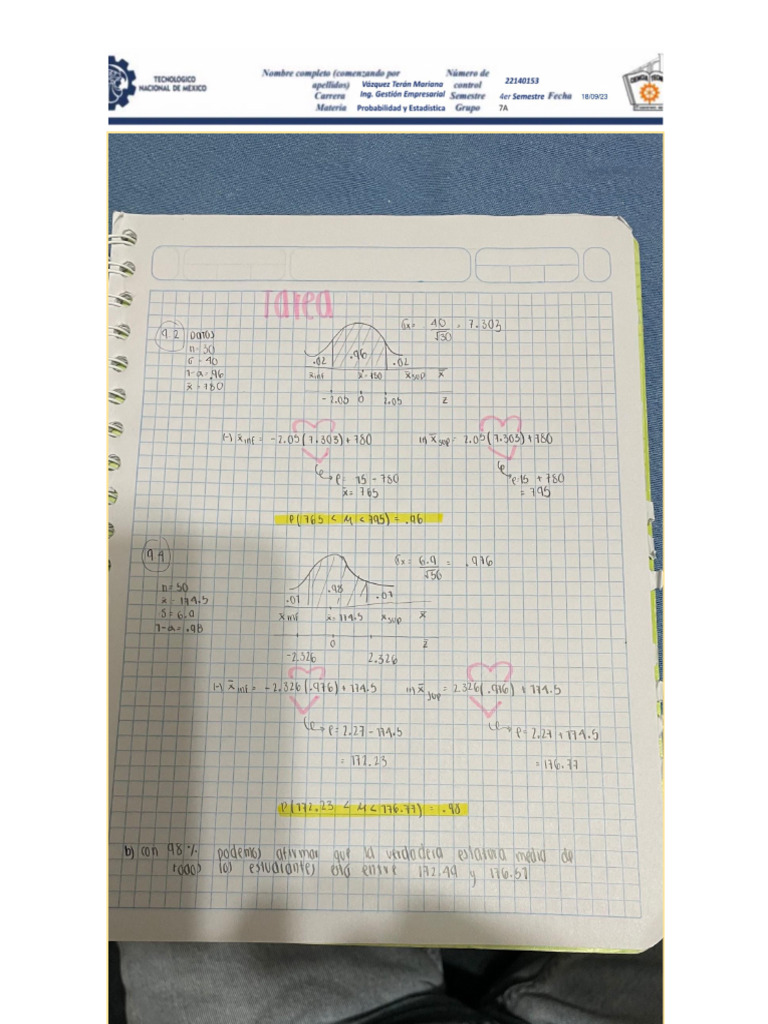 TECNOLOGICO
NACIONAL DE MÉXICO
Nombre completo (comenzando por apellidos) Vázquez Terán Mariana
Número de control 22140153
Carrera Ing. Gestión Empresarial
Semestre 4er Semestre Fecha 18/09/23
Materia Probabilidad y Estadística Grupo 7A
Tarea
9.2 Datos
n=30
σ=40
1-α=.96
x̄=780
σx= 40/√30 = 7.303
.02 .96 .02
x̄inf x̄=780 x̄sup x̄
-2.05 0 2.05 z
(-) x̄inf = -2.05(7.303)+780
(+) x̄sup= 2.05(7.303)+780
P= 15 - 780
x̄= 765
P=15 + 780
= 795
P(765 < M < 795) = .96
9.4
n=50
x̄=174.5
S=6.9
1-α=.98
σx= 6.9/√50 = .976
.01 .98 .01
x̄inf x̄=174.5 x̄sup x̄
0 z
-2.326 2.326
(-) x̄inf = -2.326(.976)+174.5
(+) x̄sup = 2.326(.976)+174.5
P= 2.27 - 174.5
= 172.23
P= 2.27 + 174.5
= 176.77
P(172.23 < M < 176.77) = .98
b) con 98% podemos afirmar que la verdadera estatura media de
todos los estudiantes está entre 172.49 y 176.51